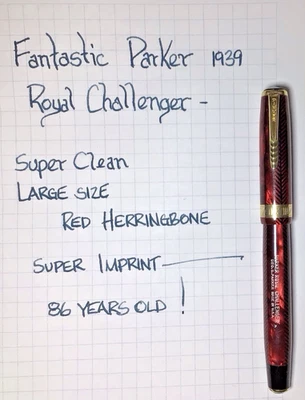 Fantastic Parker 1939
Royal Challenger -
Super Clean
LARGE SIZE
RED HERRINGBONE
SUPER IMPRINT
86 YEARS OLD !
PARKER ROYAL CHALLENGER